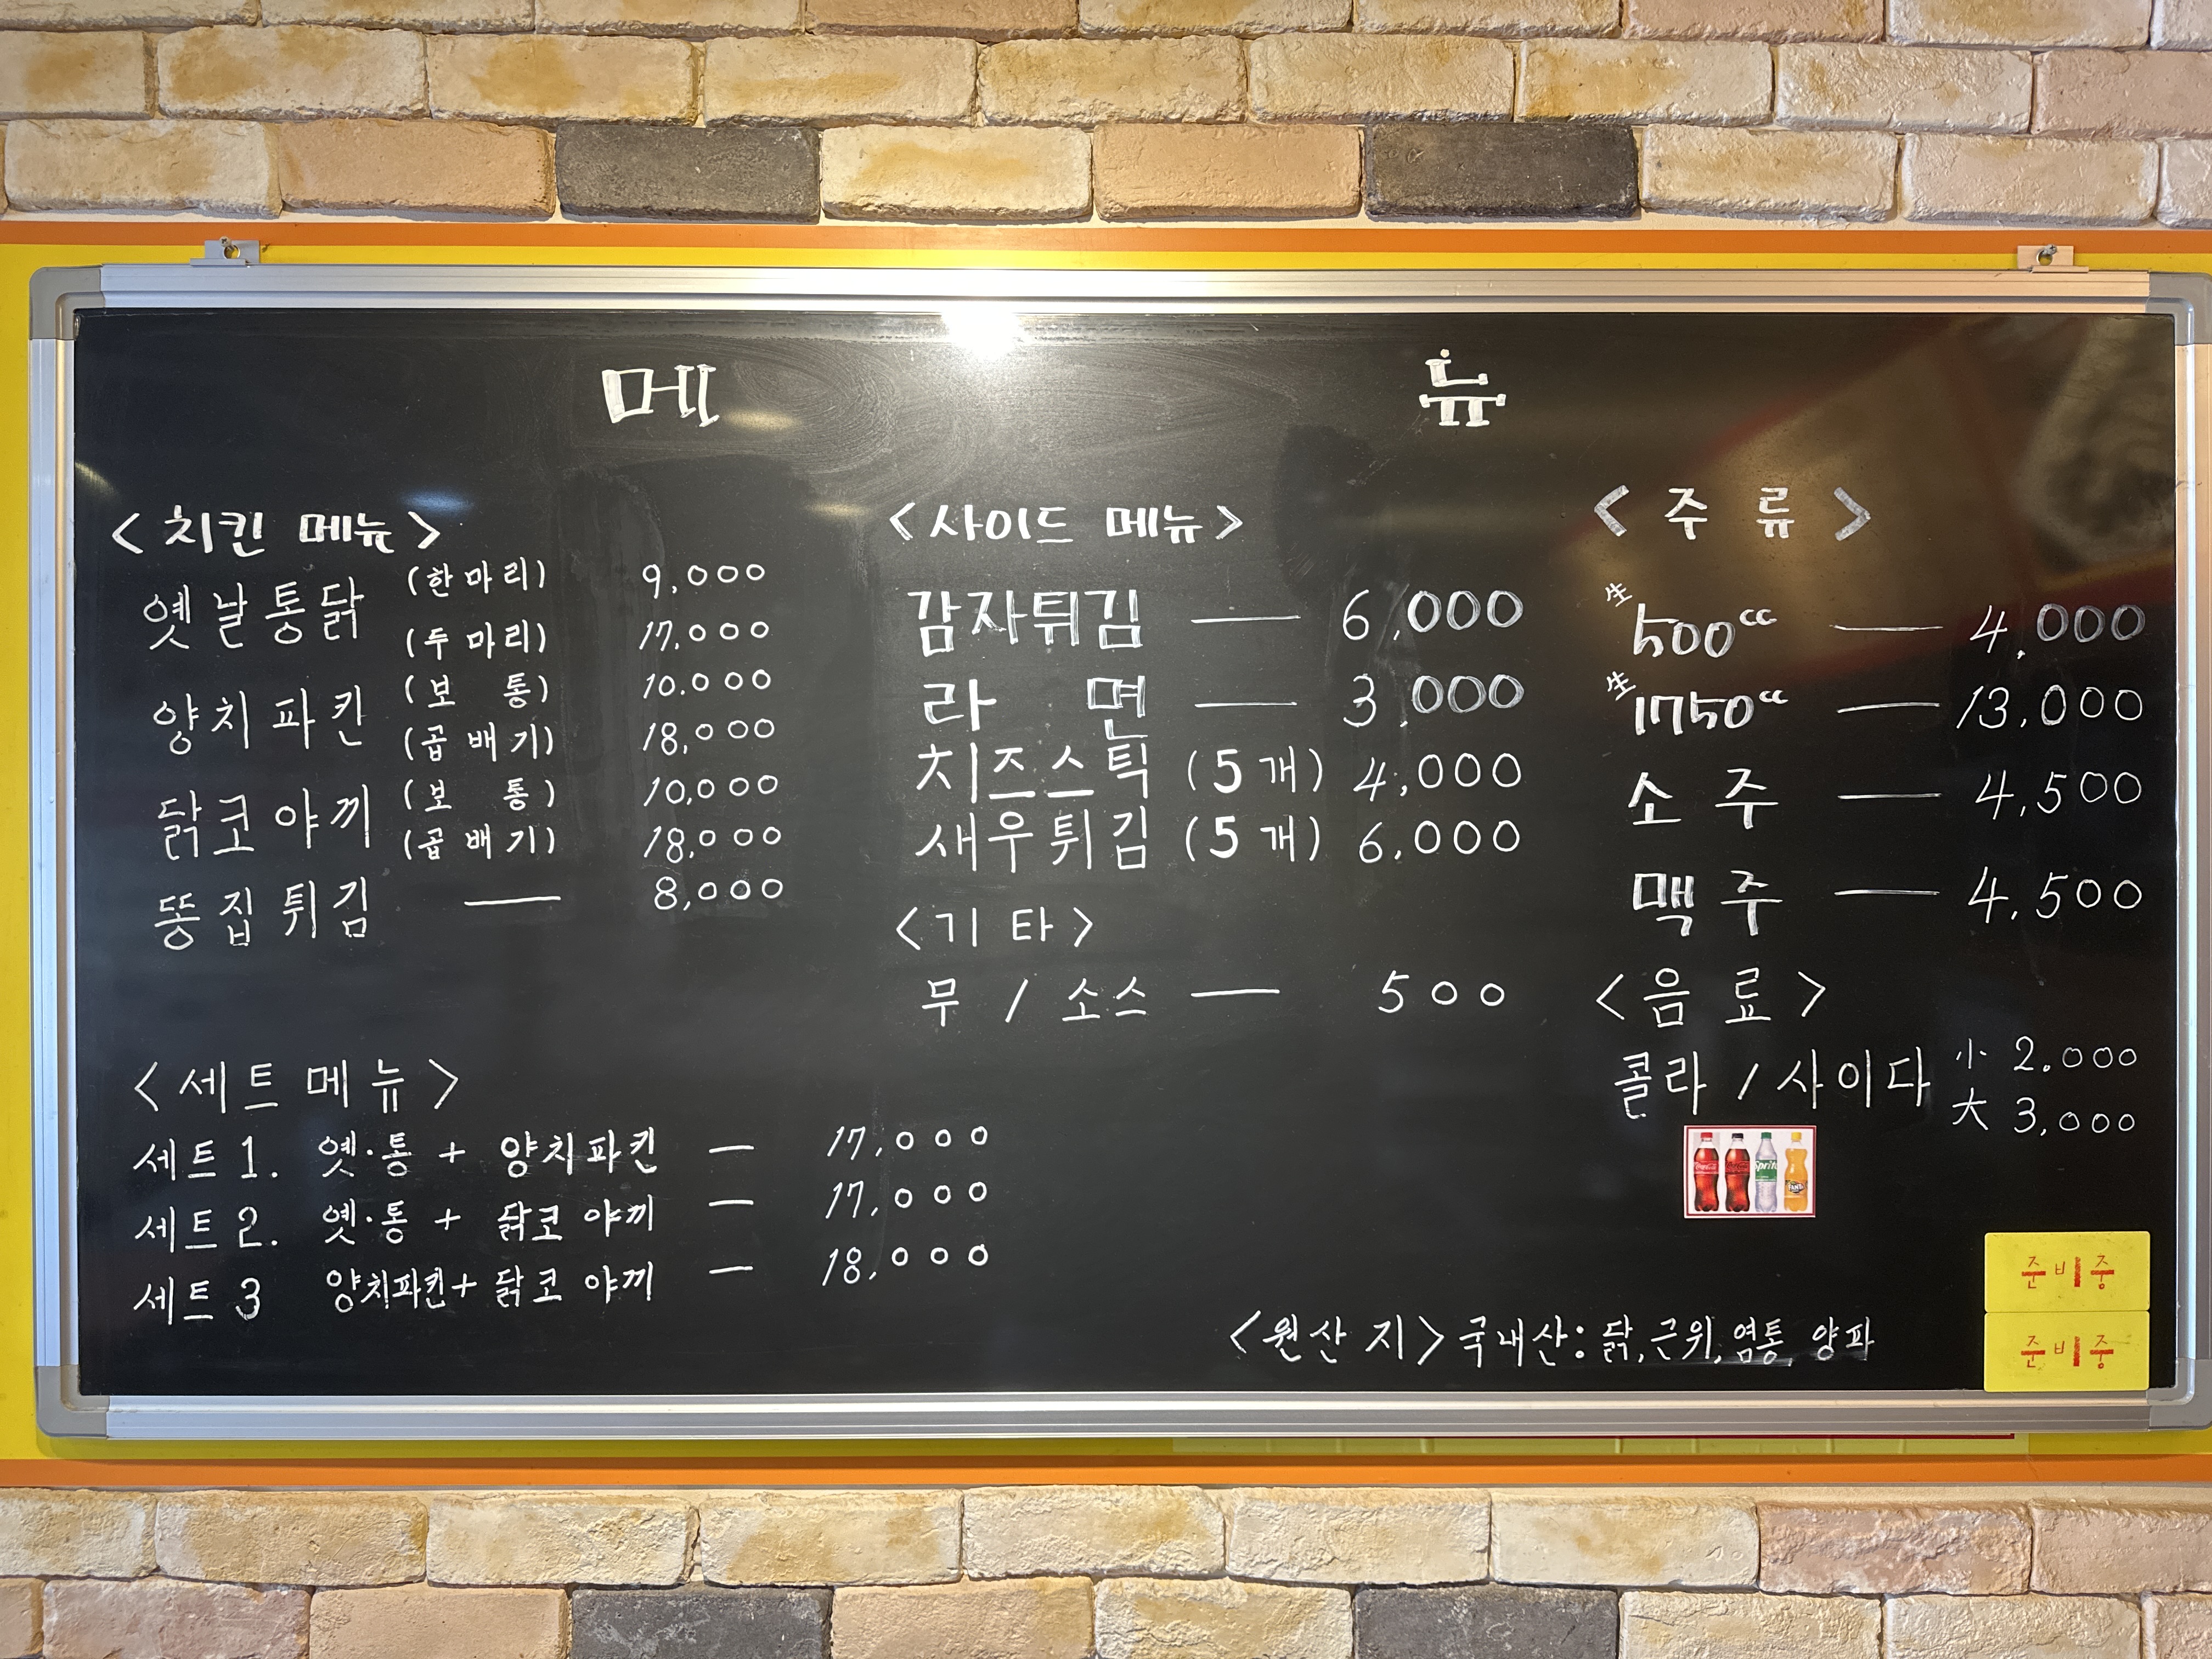 메 뉴
<치킨 메뉴>
옛날통닭 (한마리) 9,000
(두마리) 17,000
양치파킨 (보 통) 10.000
(곱배기) 18,000
닭코야끼 (보 통) 10,000
(곱배기) 18,000
똥집튀김 — 8,000
<세트메뉴>
세트 1. 옛·통 + 양치파킨 — 17,000
세트 2. 옛·통 + 닭코야끼 — 17,000
세트 3 양치파킨+ 닭코야끼 — 18,000
<사이드 메뉴>
감자튀김 — 6,000
라 면 — 3,000
치즈스틱 (5개) 4,000
새우튀김 (5개) 6,000
<기 타>
무 / 소스 — 500
<주 류>
生 500cc — 4,000
生 1750cc — 13,000
소 주 — 4,500
맥 주 — 4,500
<음 료>
콜라 / 사이다 小 2.000
大 3,000
Sprite
준비중
준비중
<원산지> 국내산: 닭, 근위, 염통, 양파